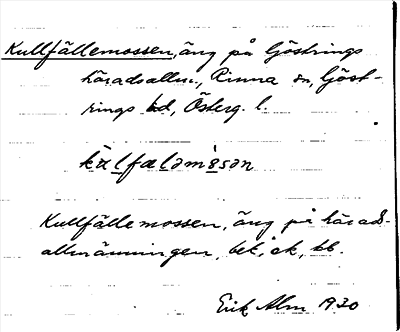 Kullfällemossen, äng på Göstrings
häradsallm., Rinna sn, Göst-
rings hd, Österg. l.
Kullfällemossen, äng på härads-
allmänningen, bek., ek, bb.
Erik Alm 1930